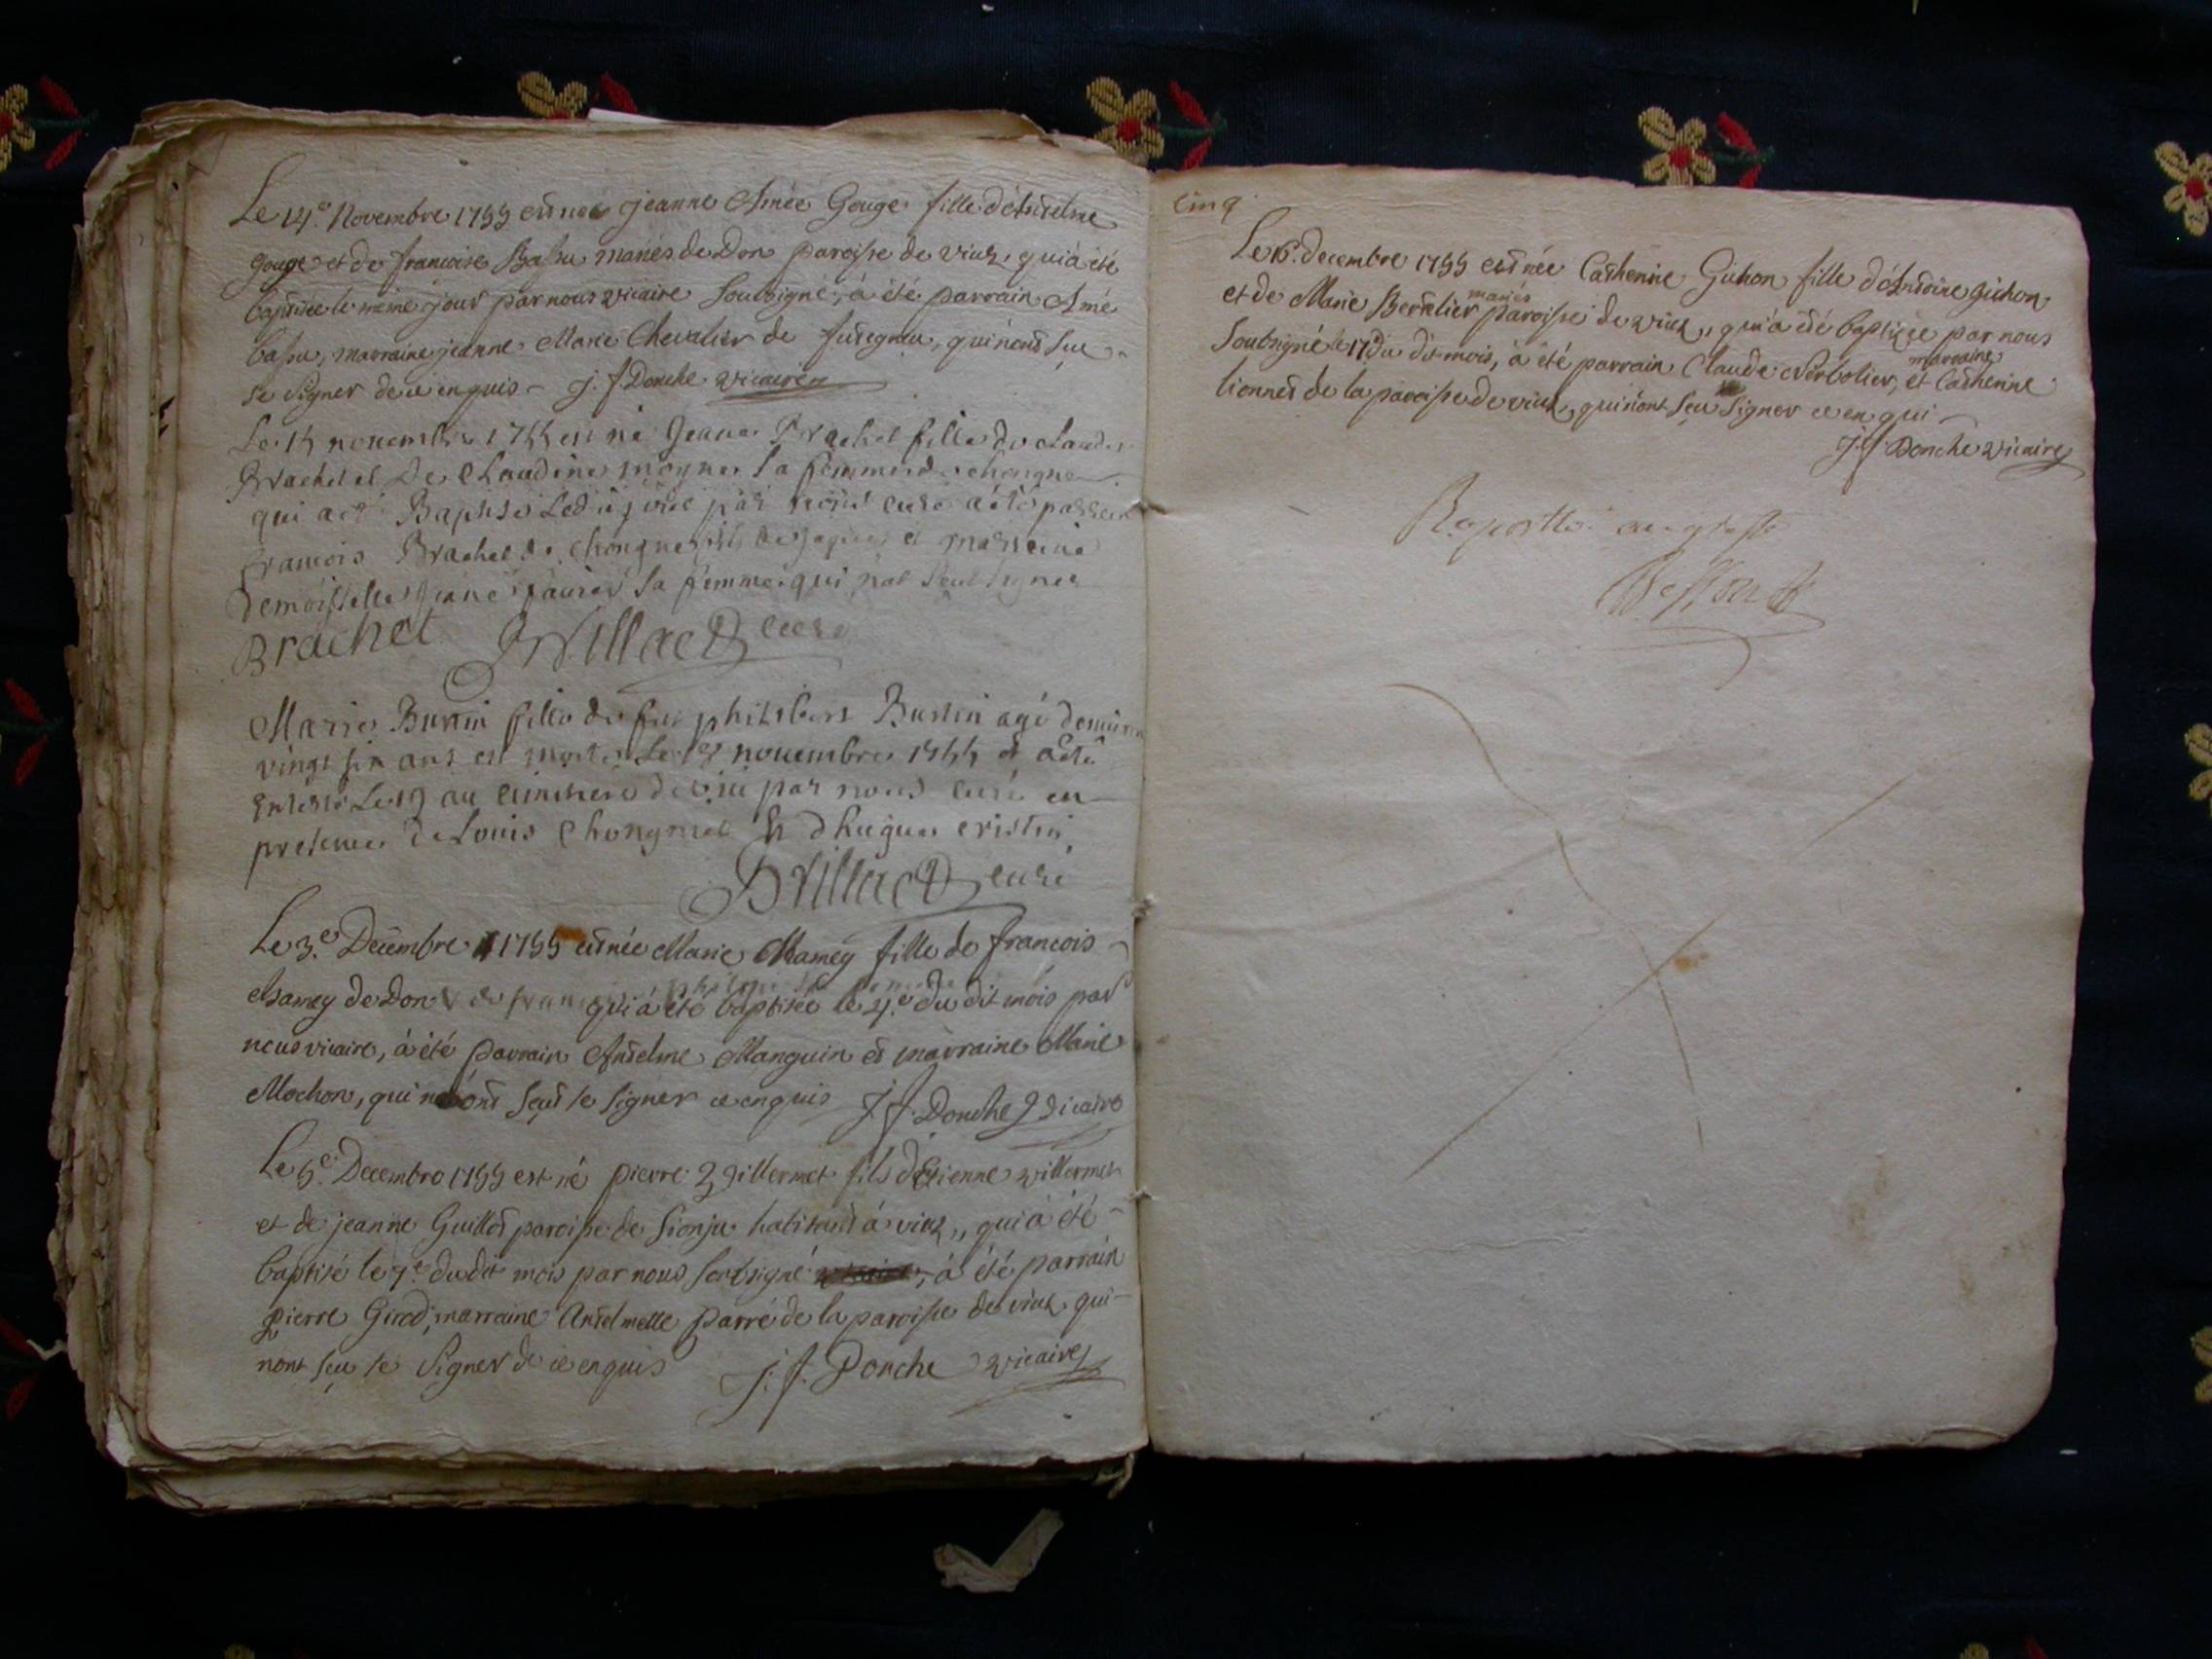 Le 4e. Novembre 1755 est née jeanne Aimée Gouge fille d'Antelme
Gouge et de francoise Bassu mariés de Don paroisse de vieux, qui à été
baptisée le même jour par nous vicaire soubsigné, à été parrain Amé
bassu, marraine jeanne Marie Chevalier de, qui n'ont sçu
se signer de ce enquis J. f. Donche vicaire
Le 15 novembre 1755 est né Jeane Brachet fille de claude
Brachet et De Claudine moyne sa femme de chongne
qui a été Baptisé Led jour par nous curé a été parrein
francois Brachet de chongne fils de et marreine
Demoisselle sa femme qui n'at seut signer
Brachet Brillact curé
Marie Bustin fille de feu philibert Bustin agé demiron
vingt six ans est morte Le novembre 1755 et a été
Enterré Le 19 au cimetiere de par nous curé en
presence de Louis Chongnat et d hugue cristin
Brillact curé
Le 3.e Decembre 1755 est née Marie Mamey fille de francois
Mamey de Don qui à été baptisée le 4.e du dit mois par
nous vicaire, à été parrain Antelme Manguin et marraine Marie
Mochon, qui n'ont seut se signer ce enquis J. f. Donche Vicaire
Le 5.e Decembre 1755 est né pierre Villermet fils d'Etienne villermet
et de jeanne Guillot paroisse de habitant à vieux, qui à été
baptisé le 7.e du dit mois par nous soubsigné, à été parrain
pierre Girod, marraine Antelmette parré de la paroisse de vieux qui
nont sçu se signer de ce enquis J. f. Donche vicaire
Cinq
Le 16. decembre 1755 est née Catherine Guhon fille d'Antoine guhon
et de Marie Bertelier mariés paroisse de vieux, qui à été baptisée par nous
soubsigné le 17 du dit mois, à été parrain Claude et marraine Catherine
lionnet de la paroisse de vieux, qui n'ont sçu signer ce enqui
J. f. Donche vicaire
au greffe